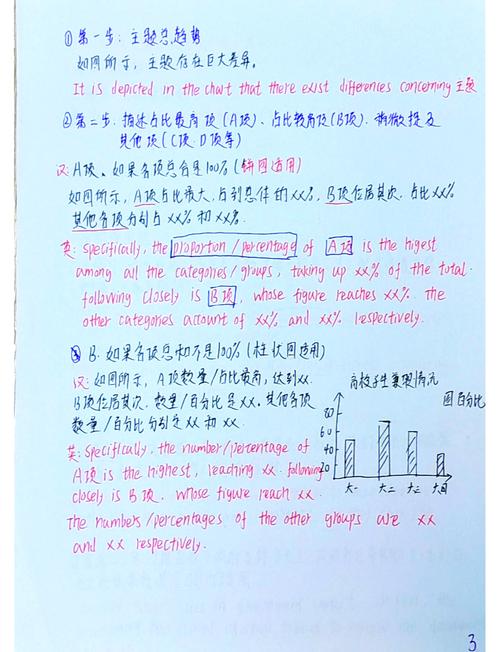 ①第一步：主题总趋势
如图所示，主题存在巨大差异。
It is depicted in the chart that there exist differences concerning 主题
②第二步：描述占比最高项(A项)、占比较高项(B项)、稍微提及
其他项(C项、D项等)
汉：A项、如果各项总合是100%(饼图适用)
如图所示，A项占比最大，占到总体的xx%，B项位居其次，占比xx%
其他各项分别占xx%和xx%.
英：Specifically, the proportion/percentage of A项 is the higest
among all the categories/groups, taking up xx% of the total.
following closely is B项, whose figure reaches xx%. The
other categories account of xx% and xx% respectively.
③ B. 如果各项总和不是100%(柱状图适用)
汉：如图所示，A项数量/占比最高，达到xx.
B项位居其次，数量/百分比是xx。其他各项
数量/百分比分别是xx和xx.
英：Specifically, the number/percentage of
A项 is the highest, reaching xx. following
closely is B项. whose figure reach xx.
The numbers/percentages of the other groups are xx
and xx respectively.
高校学生兼职情况
百分比
80
60
40
20
大一 大二 大三 大四
3